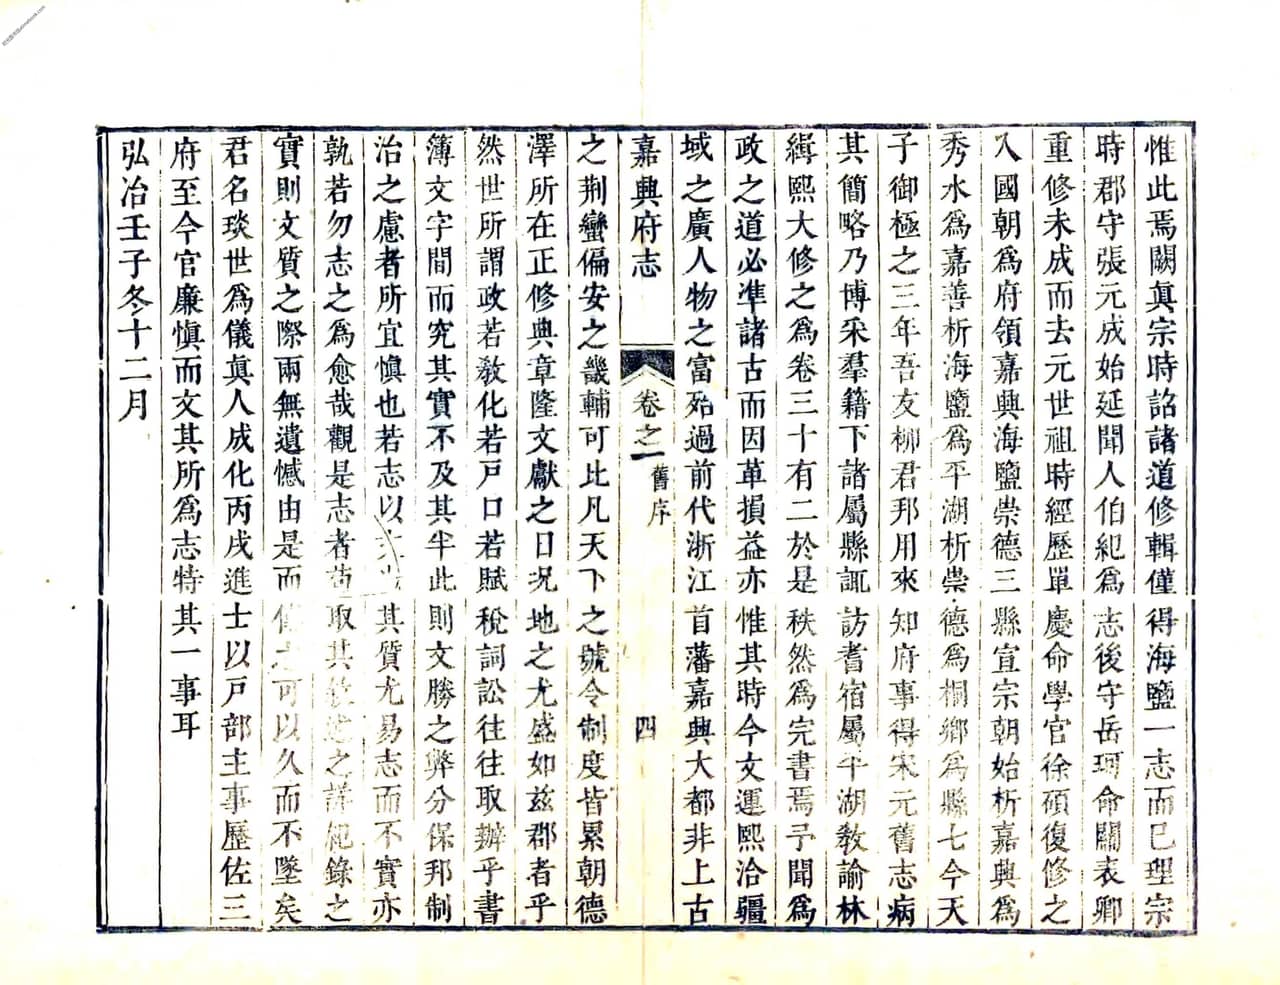 惟此焉闕眞宗時詔諸道修輯僅得海鹽一志而已理宗
時郡守張元成始延聞人伯紀爲志後守岳珂命關表卿
重修未成而去元世祖時經歷單慶命學官徐碩復修之
入國朝爲府領嘉興海鹽崇德三縣宣宗朝始析嘉興爲
秀水爲嘉善析海鹽爲平湖析崇德爲桐鄉爲縣七今天
子御極之三年吾友柳君邦用來知府事得宋元舊志病
其簡略乃博采羣籍下諸屬縣諏訪耆宿屬平湖教諭林
緝熙大修之爲卷三十有二於是秩然爲完書焉予聞爲
政之道必準諸古而因革損益亦惟其時今文運熙洽疆
域之廣人物之富殆過前代浙江首藩嘉興大都非上古
嘉興府志
卷之一
舊序
四
之荆蠻偏安之畿輔可比凡天下之號令制度皆累朝德
澤所在正修典章隆文獻之日況地之尤盛如兹郡者乎
然世所謂政若教化若戸口若賦稅詞訟往往取辦乎書
簿文字間而究其實不及其半此則文勝之弊分保邦制
治之慮者所宜慎也若志以其質尤易志而不實亦
孰若勿志之爲愈哉觀是志者苟取其之詳紀錄之
實則文質之際兩無遺憾由是而可以久而不墜矣
君名琰世爲儀眞人成化丙戌進士以戸部主事歷佐三
府至今官廉慎而文其所爲志特其一事耳
弘治壬子冬十二月